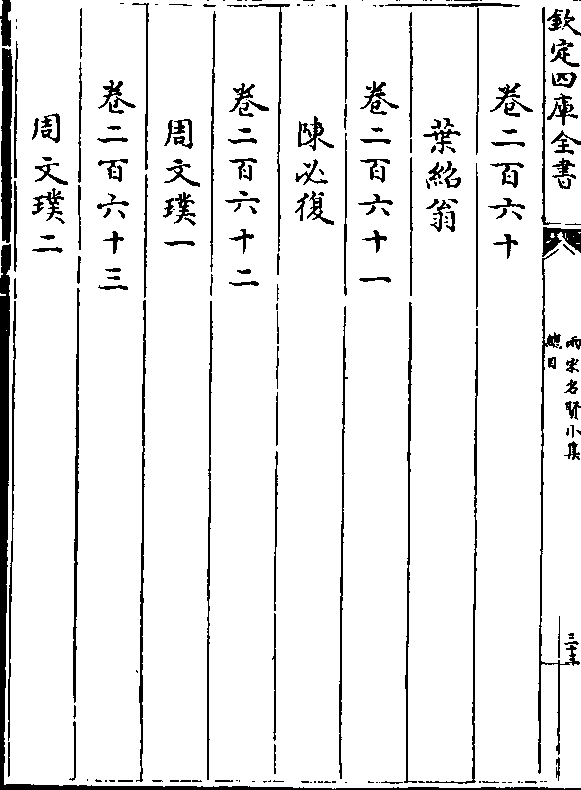 欽定四庫全書
兩宋名賢小集
總目
卷二百六十
葉紹翁
卷二百六十一
陳必復
卷二百六十二
周文璞一
卷二百六十三
周文璞二